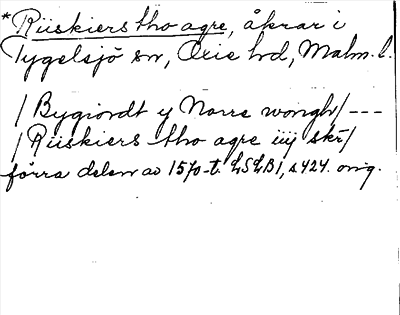 *Riiskiers tho agre, åkrar i
Tygelsjö sn, Oxie hd, Malm. l.
/ Bygiordt y Norre wongh / ---
/ Riiskiers tho agre iiij skr /
förra delen av 1570-t. LSLB1, s. 424. orig.